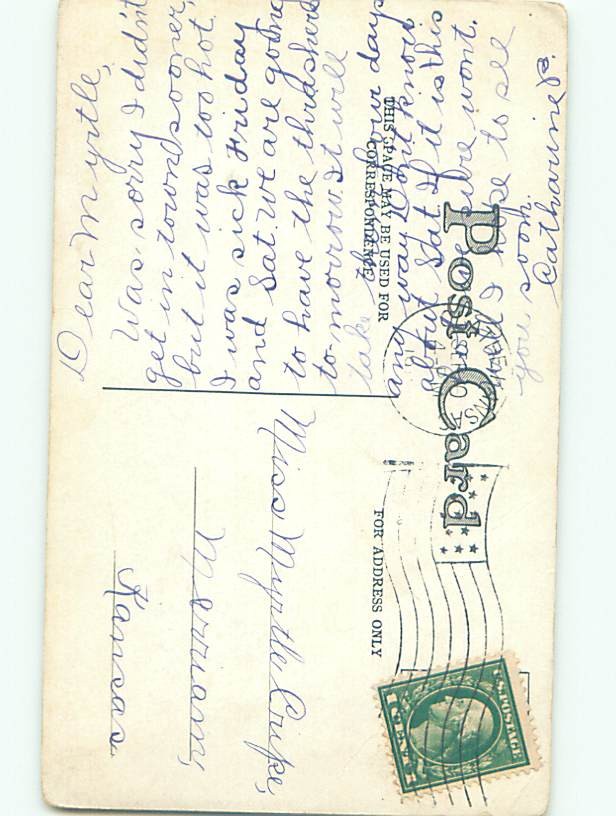 Dear Myrtle,
Was sorry I didn't
get in town sooner,
but it was too hot.
I was sick Friday
and Sat. we are going
to have the thrashers
to-morrow. It will
take four days
any way. Don't know
about Sat. If it is this
sure wont.
I like to see
you soon.
Catharine B.
Post Card
THIS SPACE MAY BE USED FOR
CORRESPONDENCE
FOR ADDRESS ONLY
Miss Myrtle Cripe,
Kansas
U.S. POSTAGE
1 CENT 1